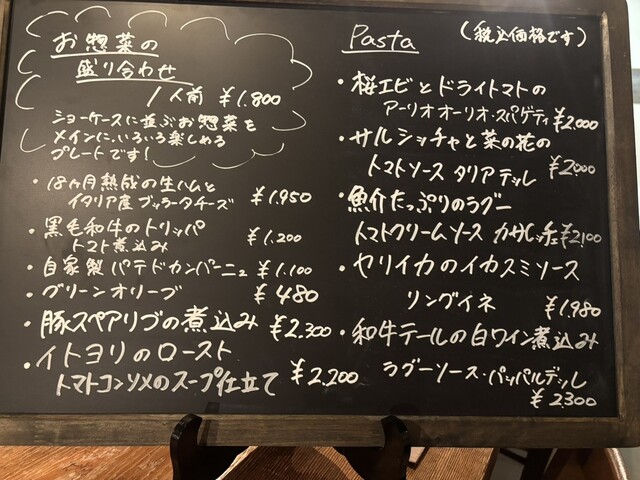 お惣菜の
盛り合わせ
1人前 ¥1.800
ショーケースに並ぶお惣菜を
メインに、いろいろ楽しめる
プレートです!
・18ヶ月熟成の生ハムと
イタリア産ブッラータチーズ ¥1.950
・黒毛和牛のトリッパ
トマト煮込み ¥1.200
・自家製パテドカンパーニュ ¥1.100
・グリーンオリーブ ¥480
・豚スペアリブの煮込み ¥2.300
・イトヨリのロースト
トマトコンソメのスープ仕立て ¥2.200
Pasta (税込価格です)
・桜エビとドライトマトの
アーリオオーリオ・スパゲティ ¥2.000
・サルシッチャと菜の花の
トマトソース タリアテッレ ¥2.000
・魚介たっぷりのラグー
トマトクリームソース カサレッチェ ¥2100
・ヤリイカのイカスミソース
リングイネ ¥1.980
・和牛テールの白ワイン煮込み
ラグーソース・パッパルデッレ
¥2300